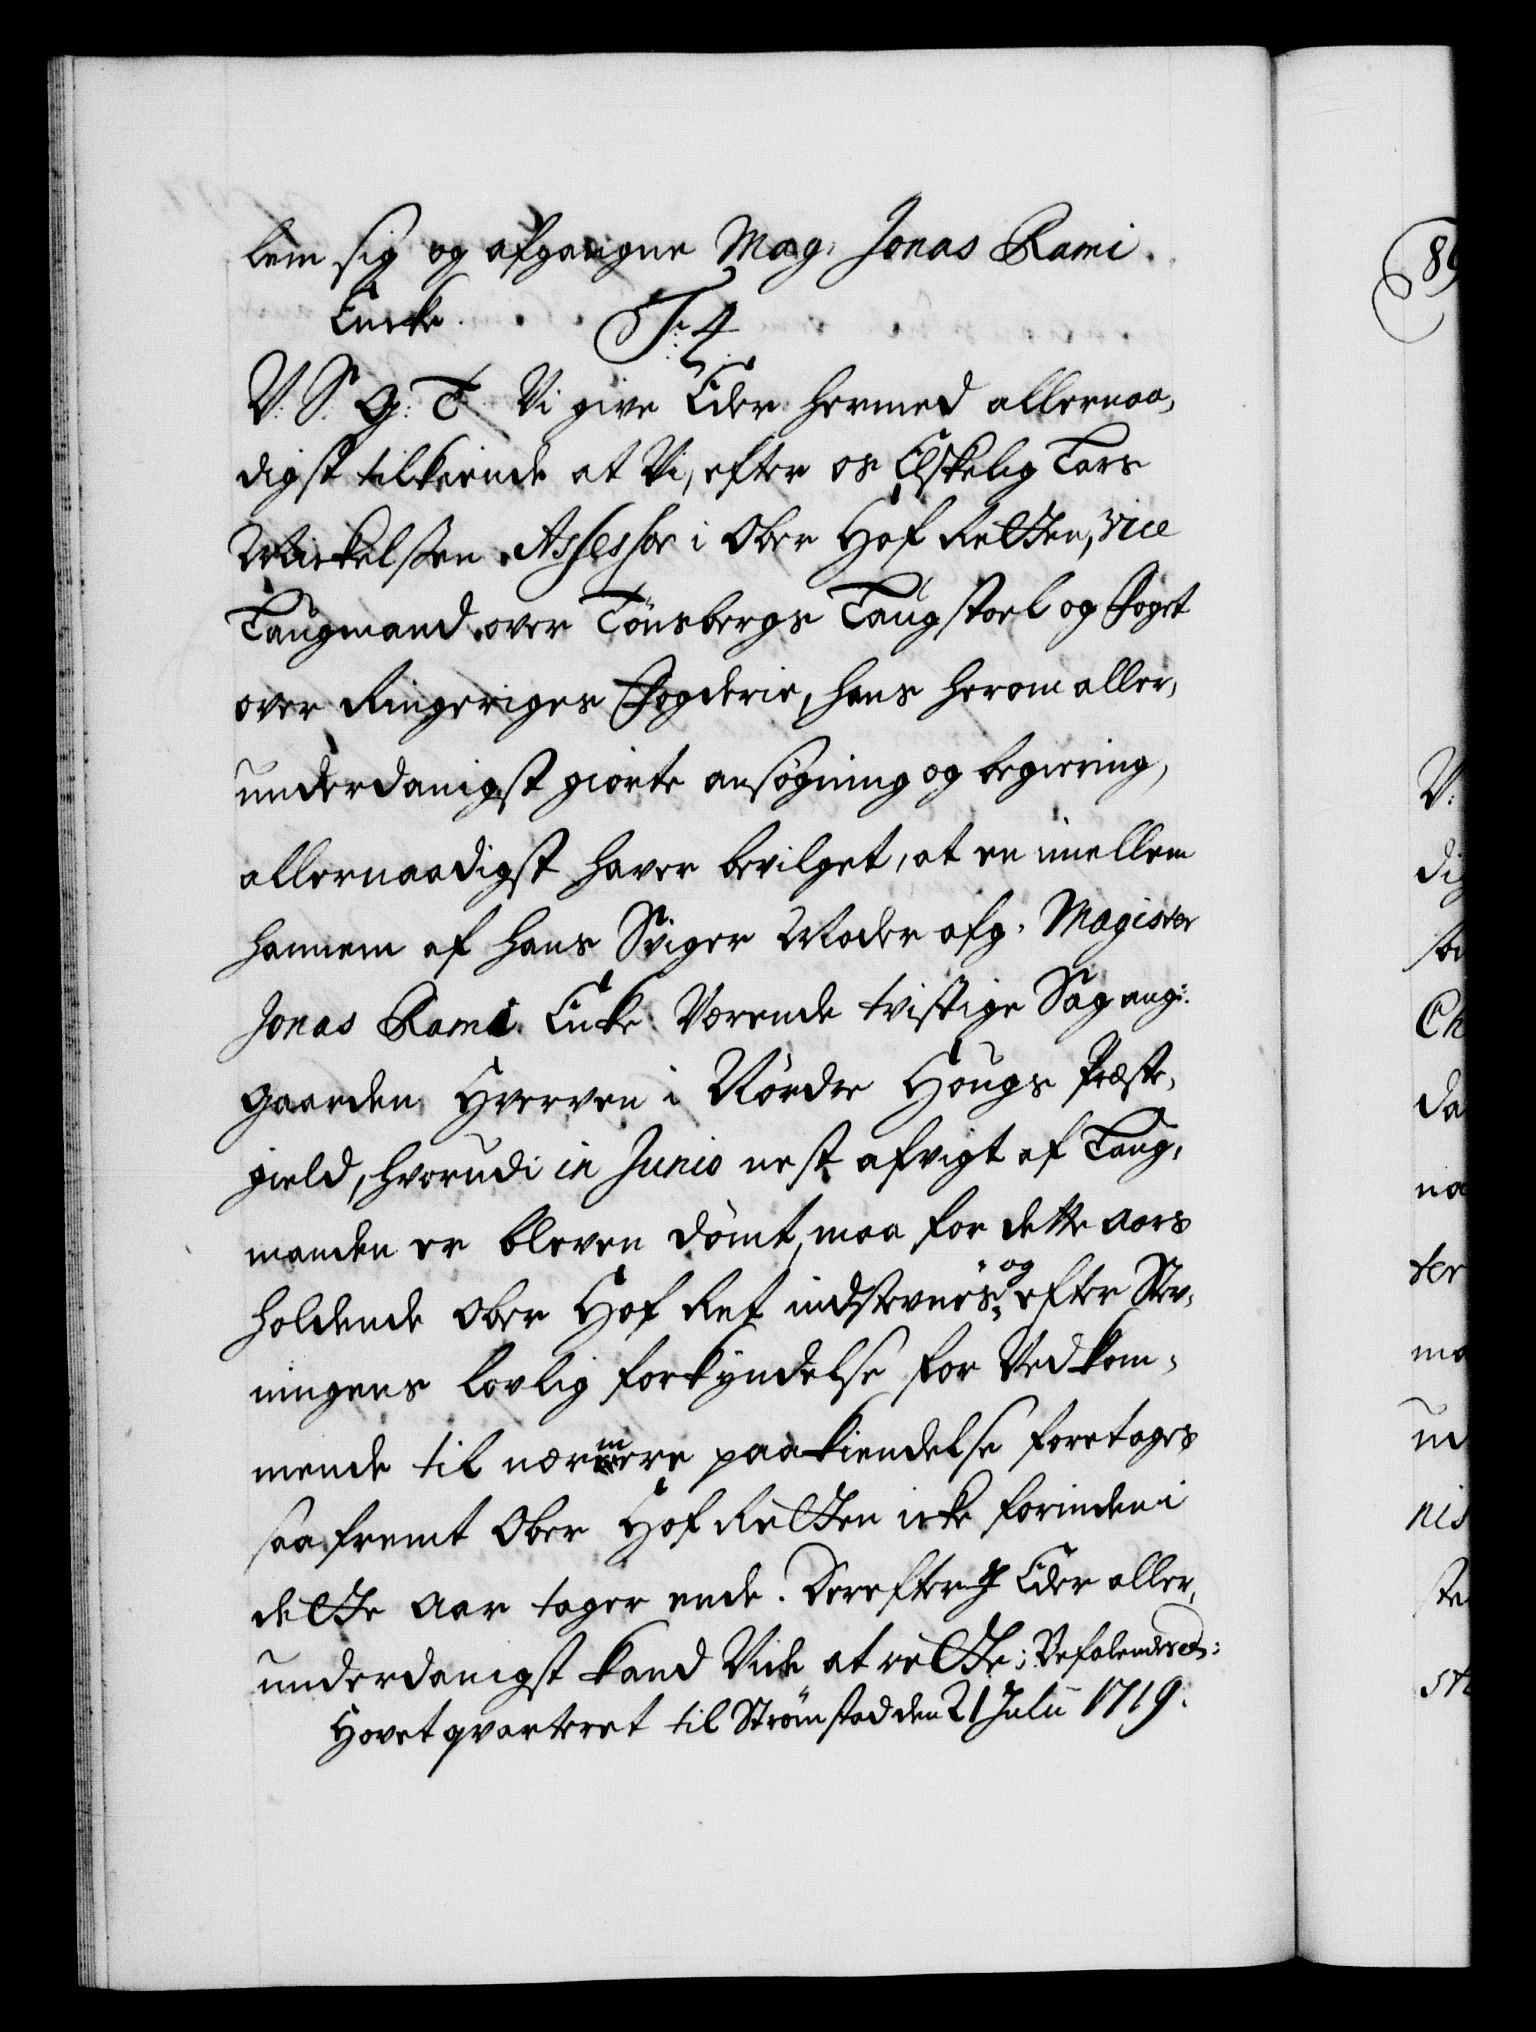 lem sig og afgangne Mag. Jonas Rami
Encke.
F: 4
V: S: G: T. Vi give Eder hermed allernaa,
digst tilkiende at Vi, efter os Elskelig Lars
Michelssen Assessor i Ober Hof Retten, vice
Laugmand over Tönsbergs Laugstoel og Foget
over Ringeriges Fogderie, hans herom aller,
underdanigst giorte ansøgning og begiering,
allernaadigst haver bevilget, at en imellem
hannem af hans Sviger Moder afg. Magister
Jonas Rami Encke Værende tvistige Sag ang:
gaarden Hverven i Nördre Hougs Præste,
gield, hvorudi in Junio nest afvigt af Laug,
manden er bleven dömt, maa for dette aars
holdende Ober Hof Ret indstevnes, og efter Stev,
ningens lovlig forkyndelse for Vedkom,
mende til nærmere paakiendelse foretages
saafremt Ober Hof Retten icke forinden i
dette Aar tager ende. Derefter I Eder aller,
underdanigst kand Vide at rette; Befalendes etc:
Hovetqvarteret til Strømstad den 21 Julii 1719.
89
V:
dig
Ch
da
na
ter
ma
nis
ste